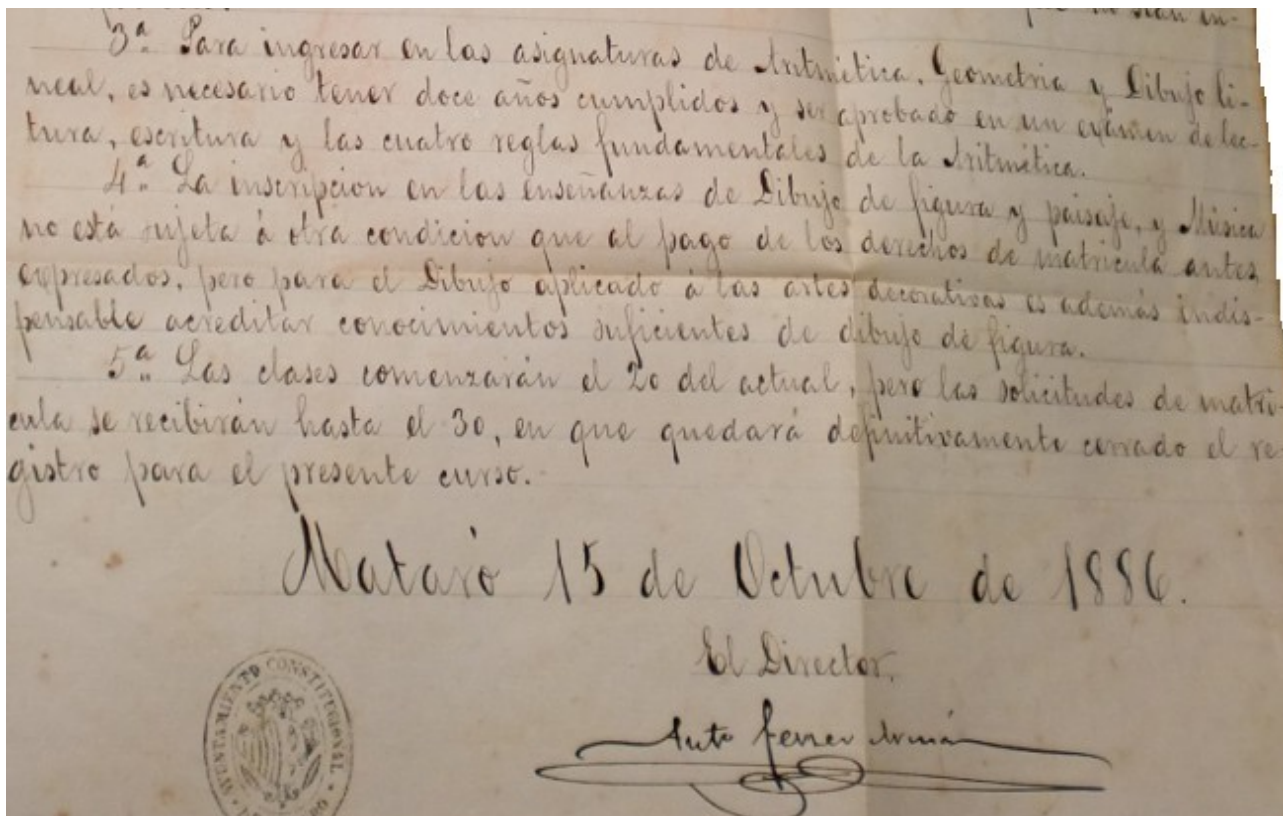 que no sean in-
3ª Para ingresar en las asignaturas de Aritmética, Geometria y Dibujo li-
neal, es necesario tener doce años cumplidos y ser aprobado en un exámen de lec-
tura, escritura y las cuatro reglas fundamentales de la Aritmética.
4ª La inscripcion en las enseñanzas de Dibujo de figura y paisaje, y Música
no está sujeta á otra condicion que al pago de los derechos de matricula antes
expresados, pero para el Dibujo aplicado á las artes decorativas es además indis-
pensable acreditar conocimientos suficientes de dibujo de figura.
5ª Las clases comenzarán el 20 del actual, pero las solicitudes de matri-
cula se recibirán hasta el 30, en que quedará definitivamente cerrado el re-
gistro para el presente curso.
Mataró 15 de Octubre de 1886.
El Director,
Anto Ferrer
AYUNTAMIENTO CONSTITUCIONAL